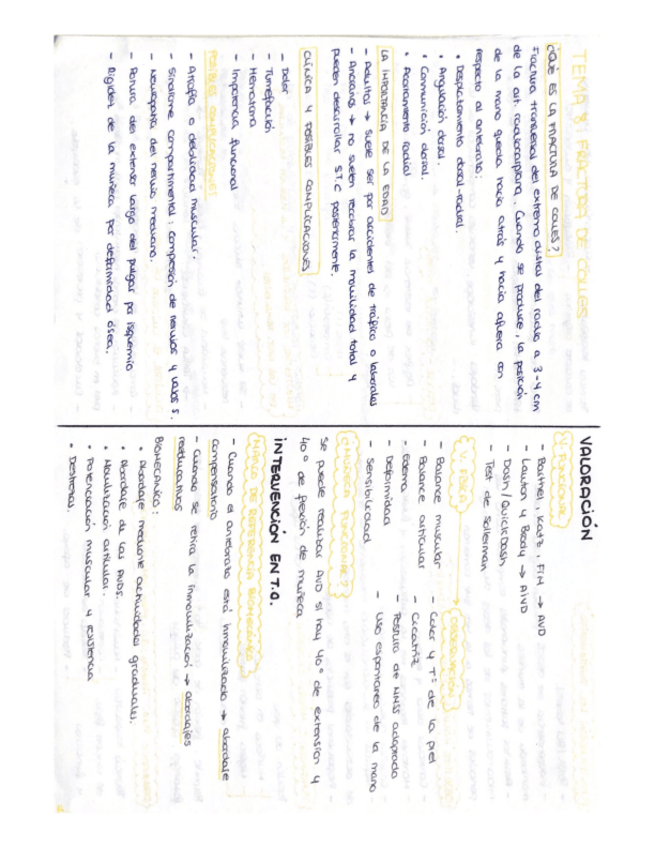 TEMA 8: FRACTURA DE COLLES
¿QUÉ ES LA FRACTURA DE COLLES?
Fractura transversal del extremo distal del radio a 3-4 cm
de la art. radiocarpiana. Cuando se produce, la posición
de la mano queda hacia atrás y hacia afuera con
respecto al antebrazo:
• Desplazamiento dorsal-radial.
• Angulación dorsal.
• Conminución dorsal.
• Acortamiento radial
LA IMPORTANCIA DE LA EDAD
- Adultos → suele ser por accidentes de tráfico o laborales
- Ancianos → no suelen recobrar la movilidad total y
pueden desarrollar S.T.C posteriormente.
CLÍNICA Y POSIBLES COMPLICACIONES
- Dolor
- Tumefacción
- Hematoma
- Impotencia funcional
POSIBLES COMPLICACIONES
- Atrofia o debilidad muscular.
- Síndrome compartimental: compresión de nervios y vasos s.
- Neuropatía del nervio mediano.
- Rotura del extensor largo del pulgar por isquemia
- Rigidez de la muñeca por deformidad ósea.
VALORACIÓN
V. FUNCIONAL
- Barthel, Katz, FIM → AVD
- Lawton y Brody → AIVD
- Dash/QuickDash
- Test de Sollerman
V. FÍSICA → OBSERVACIÓN
- Balance muscular - Color y Tª de la piel
- Balance articular - Cicatriz
- Edema - Postura de MMSS adoptada
- Deformidad - Uso espontáneo de la mano
- Sensibilidad
¿MUÑECA FUNCIONAL?
Se puede realizar AVD si hay 40° de extensión y
40° de flexión de muñeca
INTERVENCIÓN EN T.O.
MARCO DE REFERENCIA BIOMECÁNICO
- Cuando el antebrazo está inmovilizado → abordaje
compensatorio
- Cuando se retira la inmovilización → abordajes
reeducativos
BIOMECÁNICO:
• Abordaje mediante actividades graduales.
• Abordaje de las AVDs.
• Movilización articular.
• Potenciación muscular y resistencia
• Destrezas.